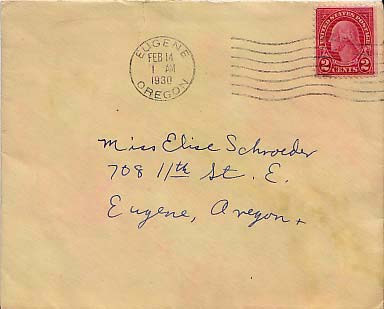 EUGENE
FEB 14
1 AM
1930
OREGON
UNITED STATES POSTAGE
2 CENTS 2
Miss Elise Schroeder
708 11th St. E.
Eugene, Oregon